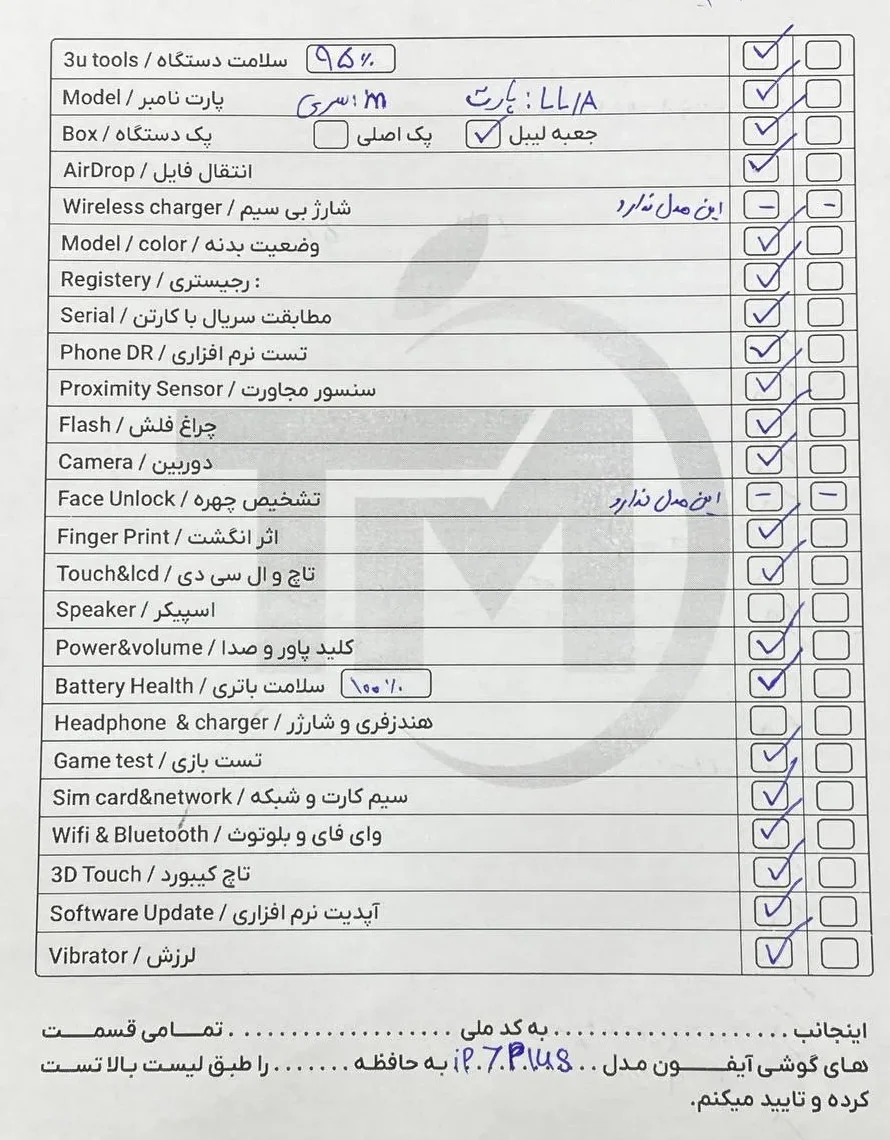 3u tools / سلامت دستگاه ۹۵٪
Model / پارت نامبر سری: m پارت: LL/A
Box / پک دستگاه پک اصلی جعبه لیبل
AirDrop / انتقال فایل
Wireless charger / شارژ بی سیم این مدل ندارد
Model / color / وضعیت بدنه
Registery / رجیستری :
Serial / مطابقت سریال با کارتن
Phone DR / تست نرم افزاری
Proximity Sensor / سنسور مجاورت
Flash / چراغ فلش
Camera / دوربین
Face Unlock / تشخیص چهره این مدل ندارد
Finger Print / اثر انگشت
Touch&lcd / تاچ و ال سی دی
Speaker / اسپیکر
Power&volume / کلید پاور و صدا
Battery Health / سلامت باتری ۱۰۰٪
Headphone & charger / هندزفری و شارژر
Game test / تست بازی
Sim card&network / سیم کارت و شبکه
Wifi & Bluetooth / وای فای و بلوتوث
3D Touch / تاچ کیبورد
Software Update / آپدیت نرم افزاری
Vibrator / لرزش
اینجانب .................... به کد ملی .................... تمامی قسمت
های گوشی آیفون مدل .. iP.7.Plus به حافظه ....... را طبق لیست بالا تست
کرده و تایید میکنم.
TM